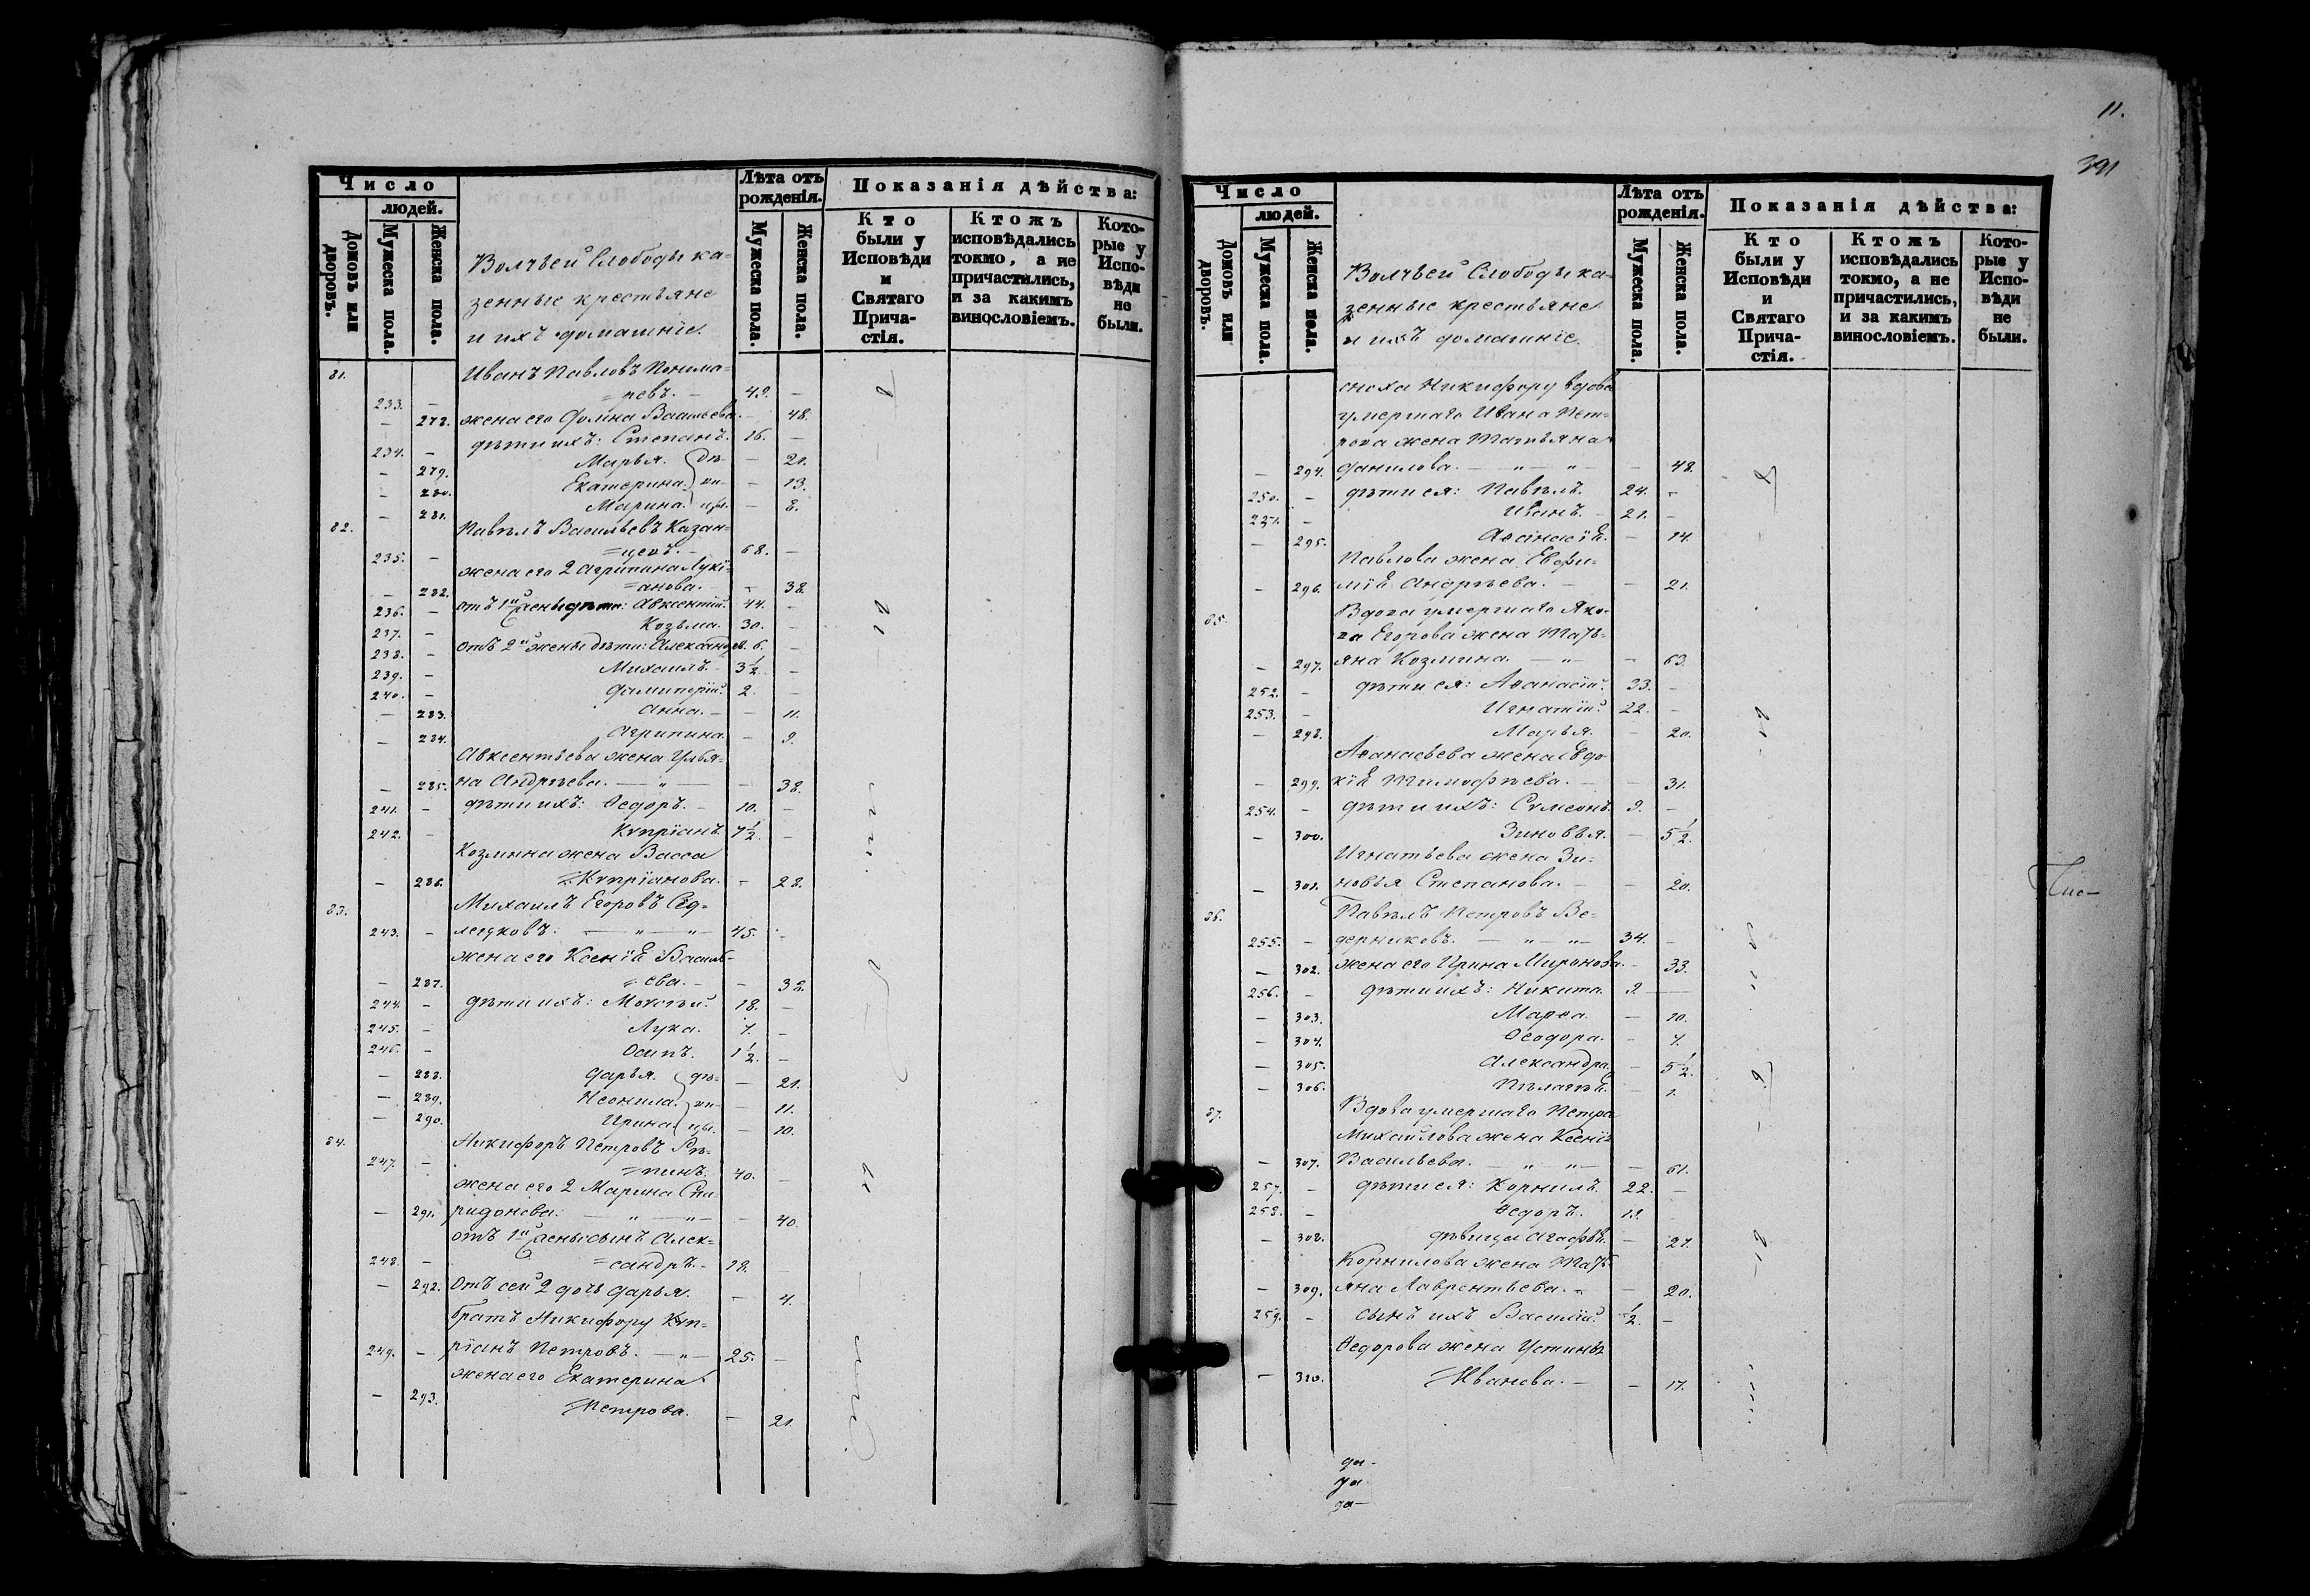 11.
391
Число
людей.
Домовъ или дворовъ.
Мужеска пола.
Женска пола.
Волчьей Слободы ка-
зенные крестьяне
и ихъ домашніе.
Лѣта отъ рожденія.
Мужеска пола.
Женска пола.
Показанія дѣйства:
Кто были у Исповѣди и Святаго Прича-стія.
Ктожъ исповѣдались токмо, а не причастились, и за какимъ винословіемъ.
Кото-рые у Испо-вѣди не были.
81. Иванъ Павловъ Понома-
233. — =ревъ. — 49. —
— 278. жена его Фолина Васильева. — 48.
234. — дѣти ихъ: Степанъ. 16. —
— 279. Марья. дѣ- — 21.
— 280. Екатерина. ви- — 13.
— 281. Марина. цы. — 8.
82. Павелъ Васильевъ Казан-
235. — =цевъ. — 68. —
жена его 2 Агрипина Лукі-
— 282. =анова. — 38.
236. — отъ 1й жены дѣти: Авксентій. 44. —
237. — Козьма. 30. —
238. — отъ 2й жены дѣти: Александръ. 6. —
239. — Михаилъ. 3 1/2. —
240. — 2. —
— 283. Анна. — — 11.
— 284. Агрипина. — 9.
Авксентьева жена Улья-
— 285. на Андрѣева. — „ — — 38.
241. — дѣти ихъ: Ѳедоръ. — 10. —
242. — Кѵпріанъ. 7 1/2. —
Козмина жена Васса
— 286. =Кѵпріанова. — 28.
83. Михаилъ Егоровъ Сед-
243. — лецковъ: — „ — „ — 45. —
жена его Ксенія Василь-
— 287. =ева. — — 38.
244. — дѣти ихъ: Моисей. 18. —
245. — Лука. 7. —
246. — Осипъ. 1 1/2. —
— 288. Дарья. дѣ- — 21.
— 289. Неонила. ви- — 11.
— 290. Ирина. цы. — 10.
84. Никифоръ Петровъ Рѣ-
247. — =пинъ. 40. —
жена его 2 Марина Спи-
— 291. ридонова: — „ — „ — — 40.
отъ 1й жены сынъ Алек-
248. — =сандръ. — 18. —
— 292. Отъ сей 2 дочь Дарья. — 4.
братъ Никифору Кѵп-
249. — ріанъ Петровъ. — „ — 25. —
жена его Екатерина
— 293. =Петрова. — 21.
Число
людей.
Домовъ или дворовъ.
Мужеска пола.
Женска пола.
Волчьей Слободы ка-
зенные крестьяне
и ихъ домашніе.
Лѣта отъ рожденія.
Мужеска пола.
Женска пола.
Показанія дѣйства:
Кто были у Исповѣди и Святаго Прича-стія.
Ктожъ исповѣдались токмо, а не причастились, и за какимъ винословіемъ.
Кото-рые у Испо-вѣди не были.
сноха Никифору вдова
умершаго Ивана Пет-
рова жена Татьяна
— 294. Данилова. — „ — „ — — 48.
250. — дѣти ея: Павелъ. 24. —
251. — Иванъ. — 21. —
— 295. Аѳанасія. — 14.
Павлова жена Евфи-
— 296. мія Андрѣева. — — 21.
85. Вдова умершаго Яко-
ва Егорова жена Тать-
— 297. яна Козмина. — „ — — 63.
252. — дѣти ея: Аѳанасій. 33. —
253. — Игнатій. 22. —
— 298. Марья. — 20.
Аѳанасьева жена Евдо-
— 299. кія Тимофѣева. — — 31.
254. — дѣти ихъ: Сѵмеонъ. 9. —
— 300. Зиновья. — 5 1/2.
Игнатьева жена Зи-
— 301. новья Степанова. — — 20.
86. Павелъ Петровъ Ве-
255. — дерниковъ. — „ — „ — 34. —
— 302. жена его Ирина Миронова. — 33.
256. — дѣти ихъ: Никита. 9. —
— 303. Марѳа. — 10.
— 304. Ѳеодора. — 7.
— 305. Александра. — 5 1/2.
— 306. Пелагея. — 1.
87. Вдова умершаго Петра
Михайлова жена Ксенія
— 307. Васильева. — „ — „ — — 61.
257. — дѣти ея: Корнилъ. 22. —
258. — Ѳедоръ. 18.
— 308. дѣвица Агафья. — 27.
Корнилова жена Тать-
— 309. яна Лаврентьева. — — 20.
259. — сынъ ихъ Василій. 1/2. —
Ѳедорова жена Устинья
— 310. =Иванова. — — 17.